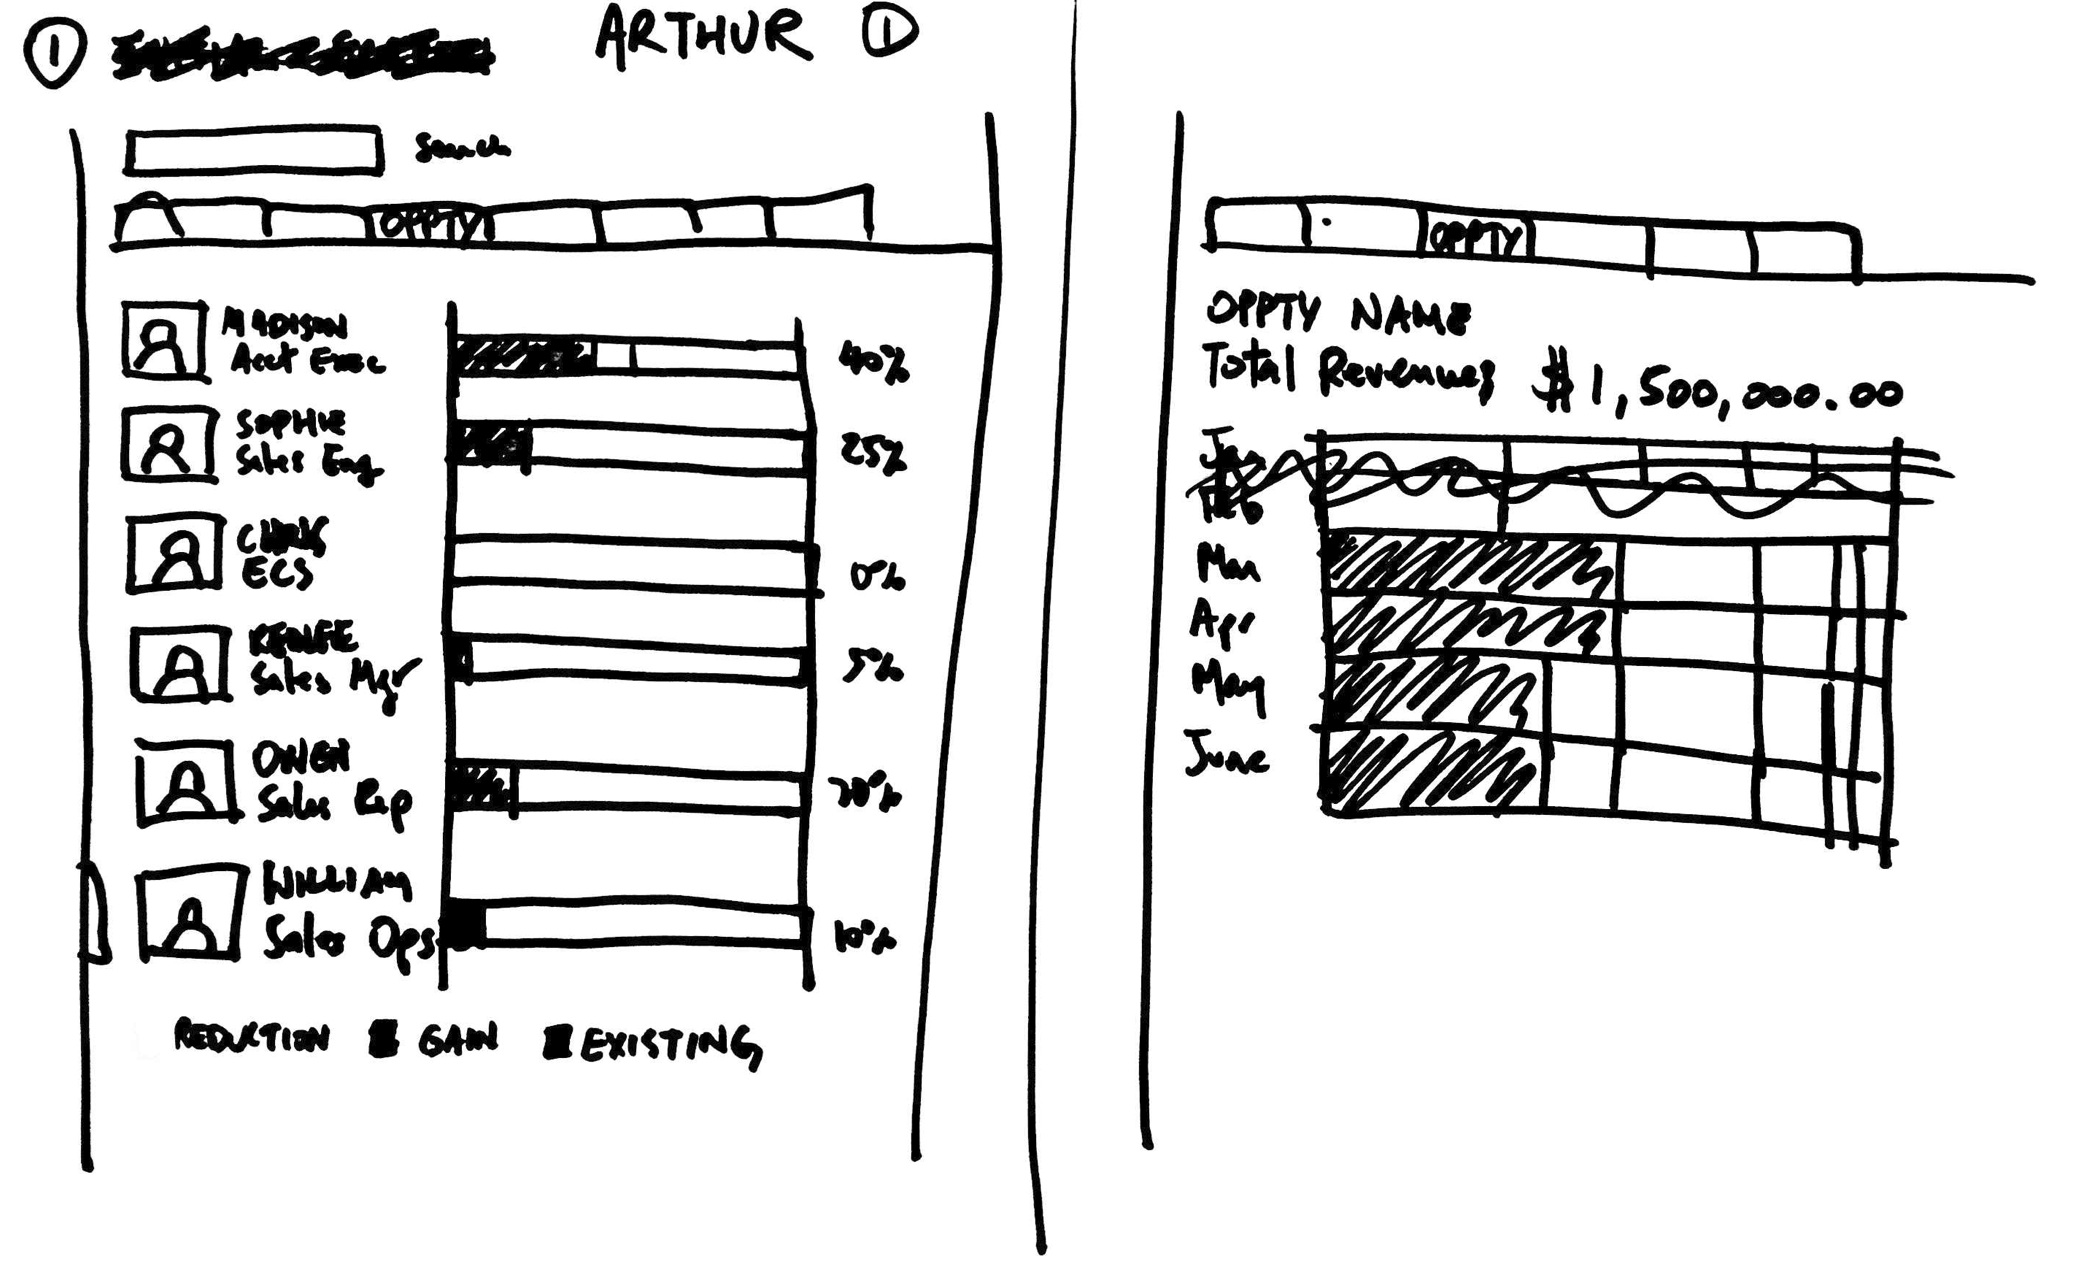 1
ARTHUR 1
Search
OPPTY
MADISON
Acct Exec
40%
SOPHIE
Sales Eng
25%
CHRIS
ECS
0%
RENEE
Sales Mgr
5%
OWEN
Sales Rep
20%
WILLIAM
Sales Ops
10%
REDUCTION GAIN EXISTING
OPPTY
OPPTY NAME
Total Revenues $1,500,000.00
Jan
Feb
Mar
Apr
May
June